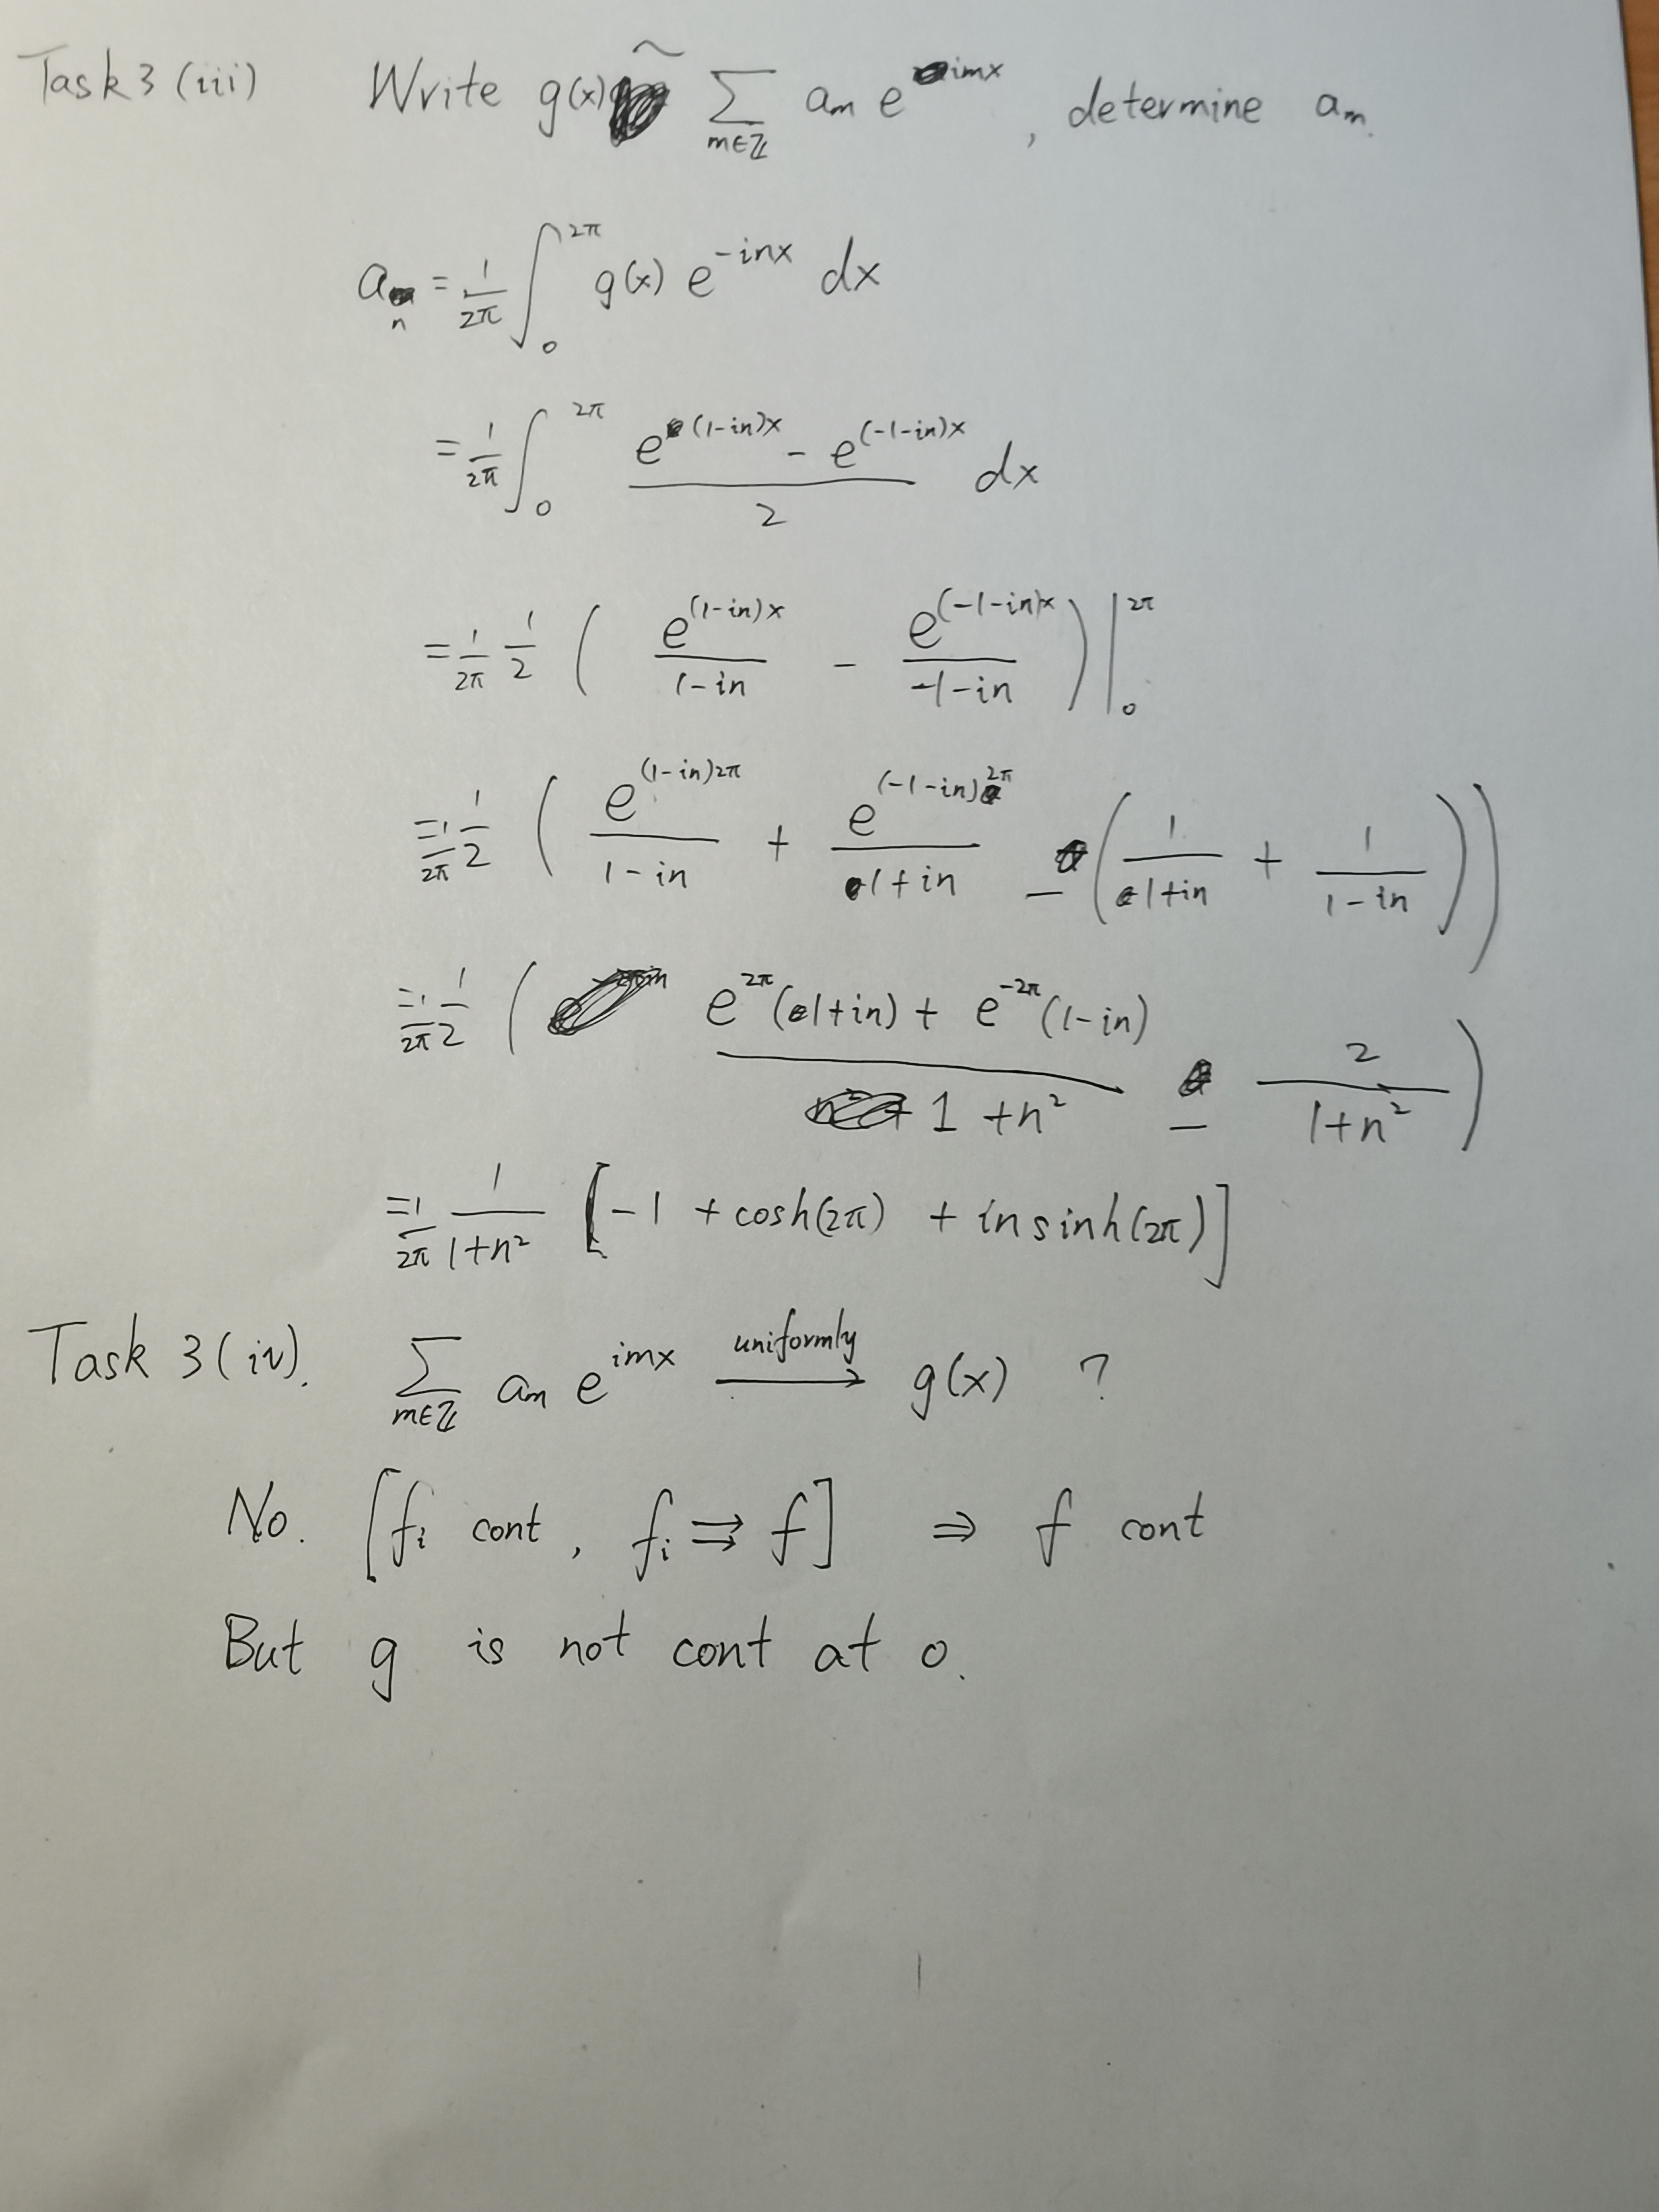 Task 3 (iii) Write g(x) ~ ∑_{m∈ℤ} a_m e^{imx}, determine a_m.
a_n = \frac{1}{2π} ∫_0^{2π} g(x) e^{-inx} dx
= \frac{1}{2π} ∫_0^{2π} \frac{e^{(1-in)x} - e^{(-1-in)x}}{2} dx
= \frac{1}{2π} \frac{1}{2} ( \frac{e^{(1-in)x}}{1-in} - \frac{e^{(-1-in)x}}{-1-in} ) |_0^{2π}
= \frac{1}{2π} \frac{1}{2} ( \frac{e^{(1-in)2π}}{1-in} + \frac{e^{(-1-in)2π}}{1+in} - ( \frac{1}{1+in} + \frac{1}{1-in} ) )
= \frac{1}{2π} \frac{1}{2} ( \frac{e^{2π}(1+in) + e^{-2π}(1-in)}{1+n^2} - \frac{2}{1+n^2} )
= \frac{1}{2π} \frac{1}{1+n^2} [-1 + cosh(2π) + in sinh(2π)]
Task 3 (iv). ∑_{m∈ℤ} a_m e^{imx} \xrightarrow{uniformly} g(x) ?
No. [f_i cont, f_i ⇉ f] ⇒ f cont
But g is not cont at 0.